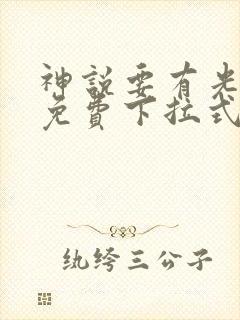 神說要有光
免費下拉式
纨绔三公子